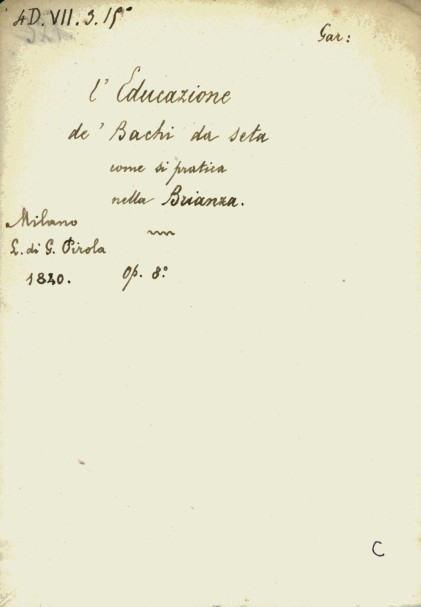 4D.VII.3.15°
Gar:
l'Educazione
de' Bachi da seta
come si pratica
nella Brianza.
Milano
L. di G. Pirola
1820. Op. 8°
C